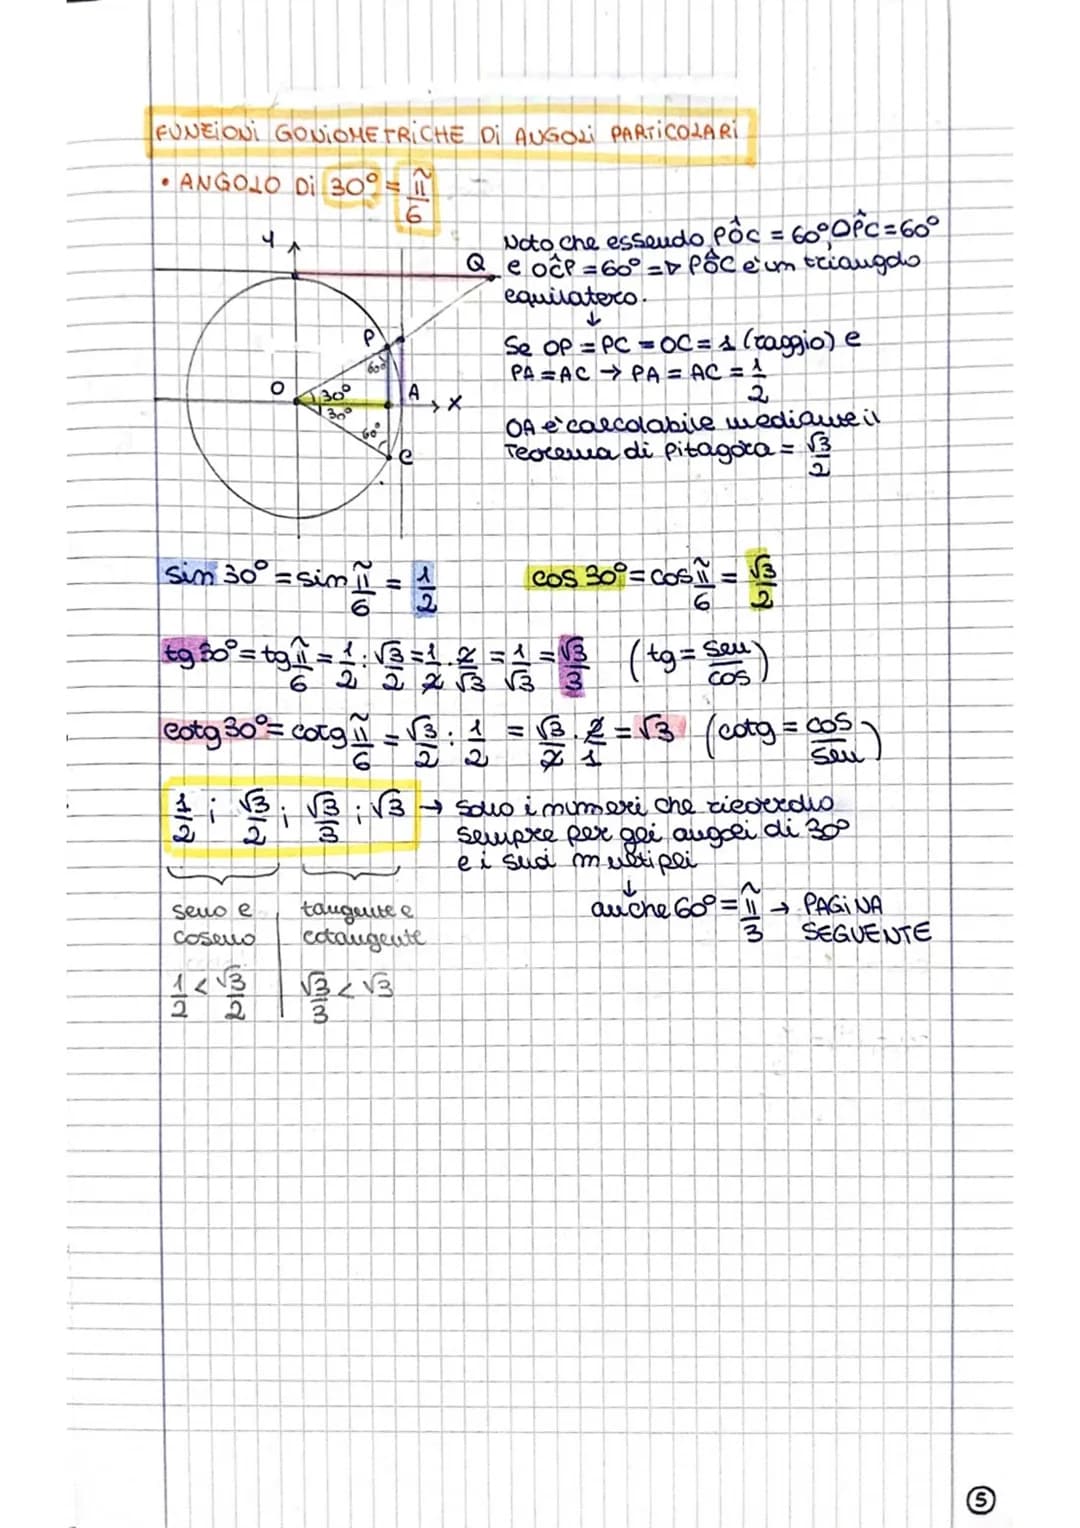 FUNZIONI GONIOMETRICHE Di ANGOLi PARTICOLARI
• ANGOLO Di 30° = π/6
Noto che essendo PÔC = 60°, OP̂C = 60°
e OĈP = 60° ⇒ PÔC è un triangolo
equilatero.
↓
Se OP = PC = OC = 1 (raggio) e
PA = AC → PA = AC = 1/2
OA è calcolabile mediante il
Teorema di Pitagora = √3/2
y
Q
P
60°
O
30°
A
x
30°
60°
C
sin 30° = sin π/6 = 1/2
cos 30° = cos π/6 = √3/2
tg 30° = tg π/6 = 1/2 : √3/2 = 1/2 · 2/√3 = 1/√3 = √3/3 (tg = sen/cos)
cotg 30° = cotg π/6 = √3/2 : 1/2 = √3/2 · 2/1 = √3 (cotg = cos/sen)
1/2 ; √3/2 ; √3/3 ; √3 → sono i numeri che ricorrono
sempre per gli angoli di 30°
e i suoi multipli
↓
anche 60° = π/3 → PAGINA
SEGUENTE
seno e
coseno
1/2 < √3/2
tangente e
cotangente
√3/3 < √3
5